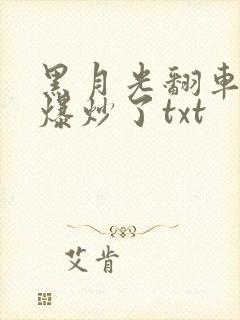 黑月光翻車
爆炒了txt
艾肯